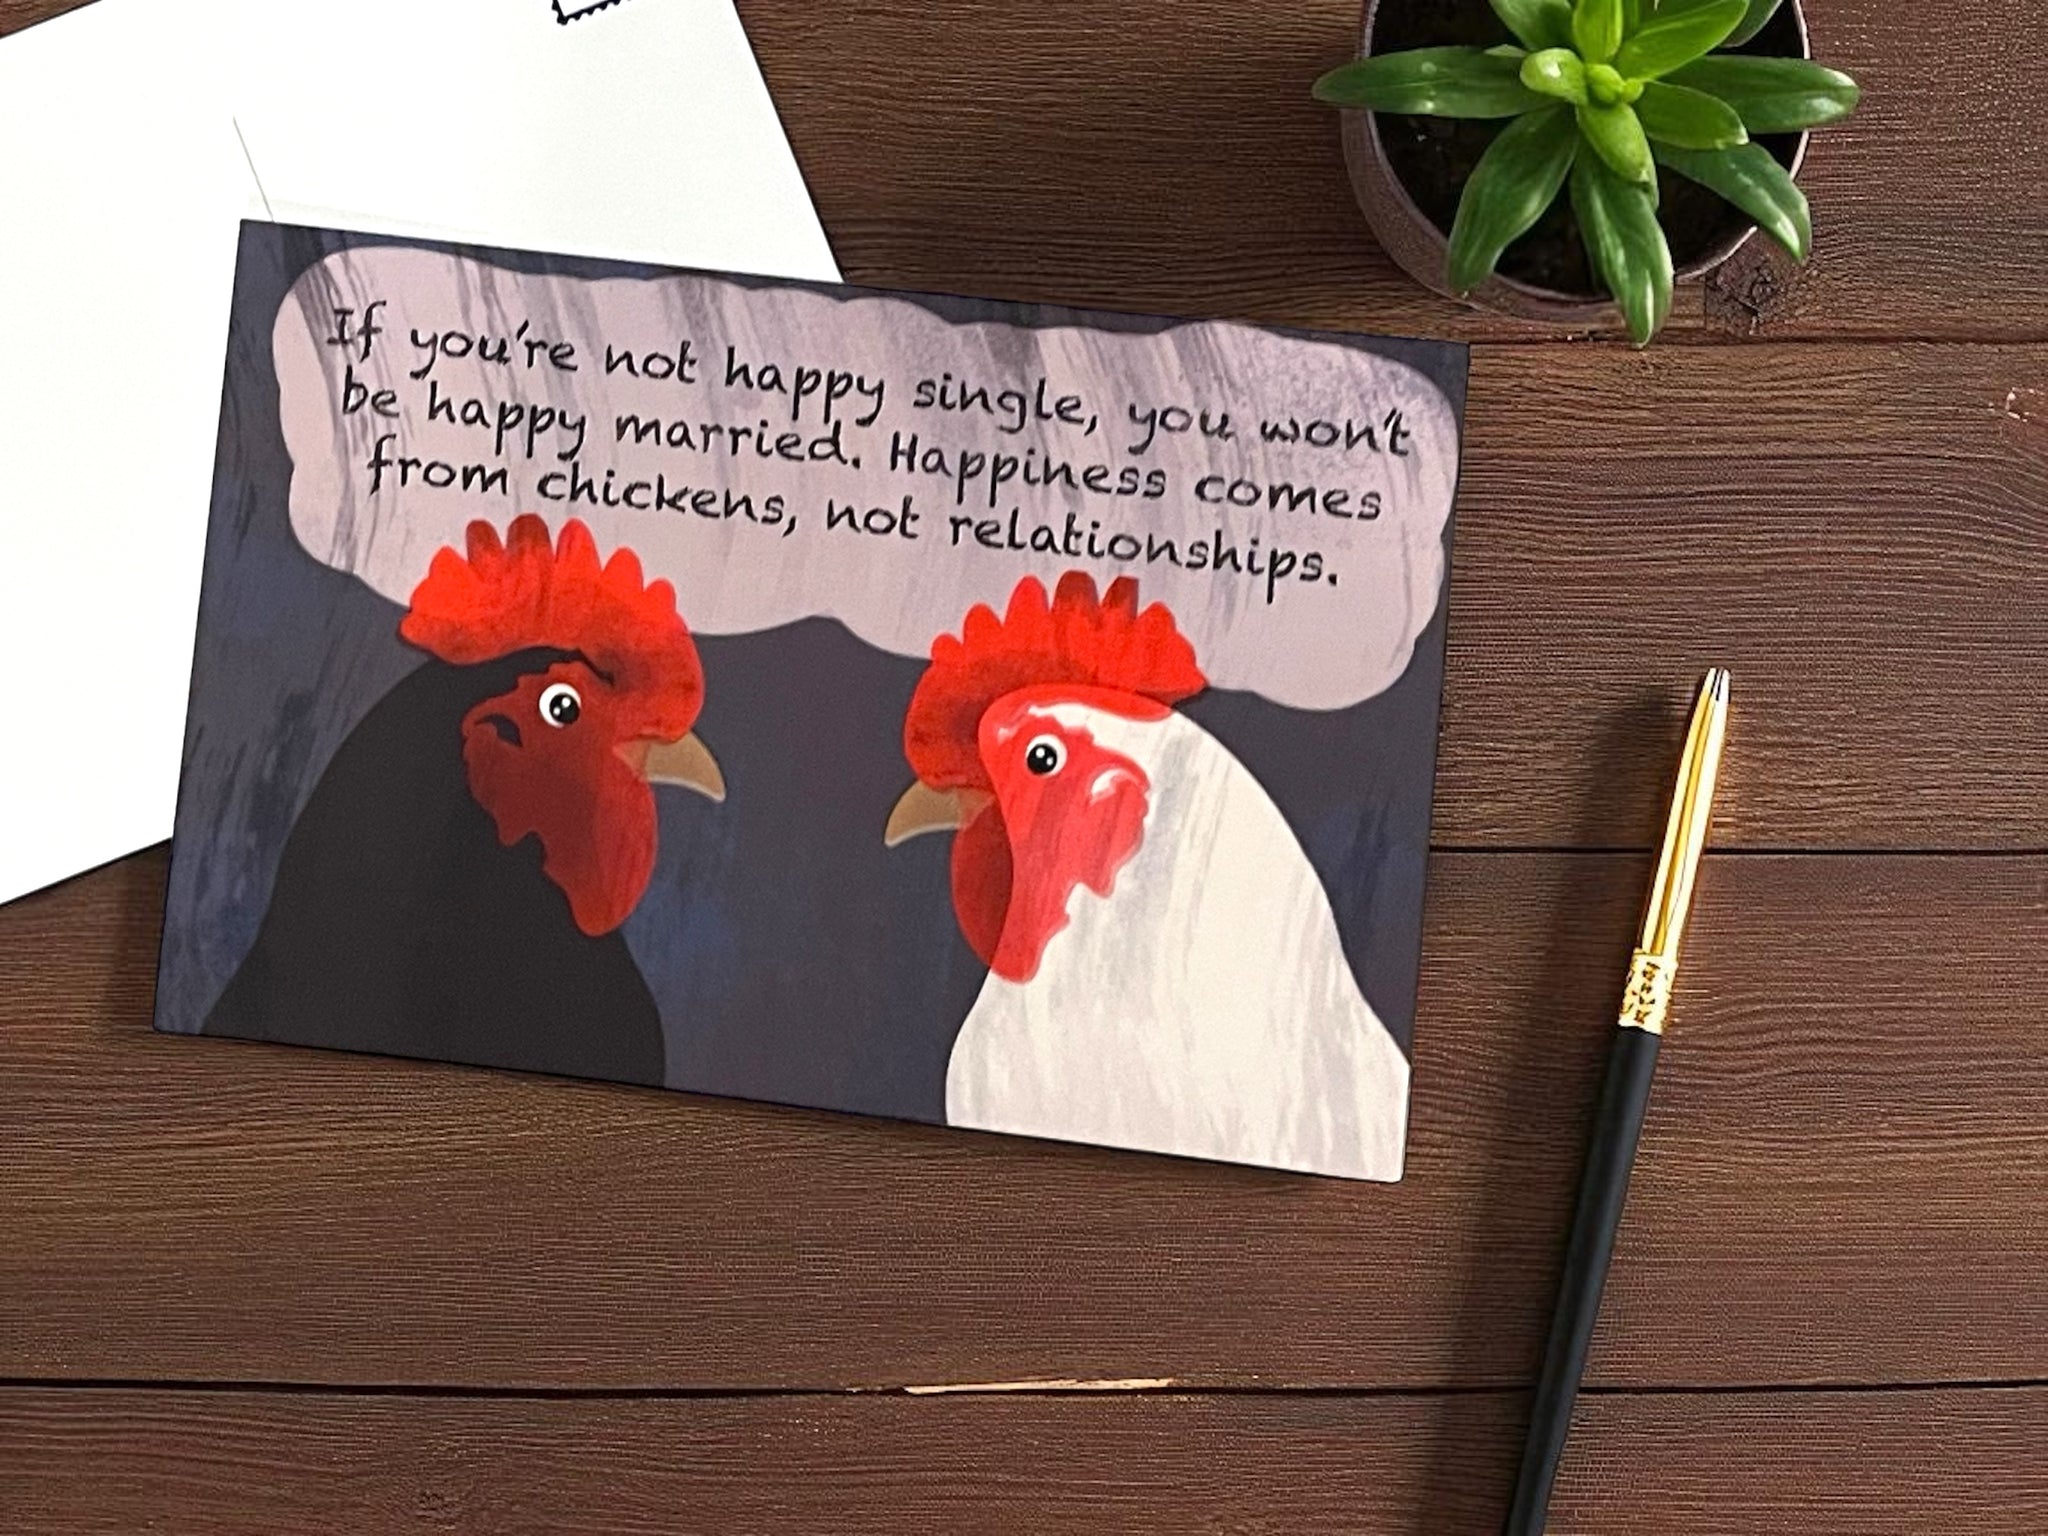 If you're not happy single, you won't
be happy married. Happiness comes
from chickens, not relationships.